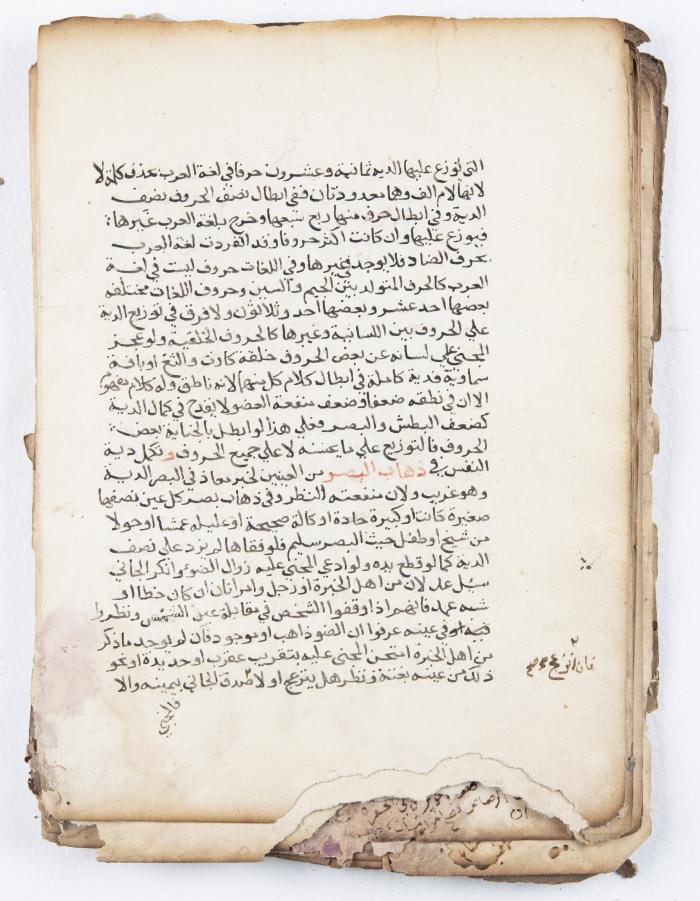 التي توزع عليها الدية ثمانية وعشرون حرفا في لغة العرب بحذف كلمة لا
لانها لام الف وهما معدودتان ففي ابطال نصف الحروف نصف
الدية وفي ابطال حرف منها ربع سبعها وخرج بلغة العرب غيرها
فيوزع عليها وان كانت اكثر حروفا وقد انفردت لغة العرب
بحرف الضاد فلا يوجد في غيرها وفي اللغات حروف ليست في لغة
العرب كالحرف المتولد بين الجيم والشين وحروف اللغات مختلفة
بعضها احد عشر وبعضها احد وثلاثون ولا فرق في توزيع الدية
علي الحروف بين اللسانية وغيرها كالحروف الحلقية ولو عجز
المجني علي لسانه عن بعض الحروف خلقة كارت والثغ او بافة
سماوية فدية كاملة في ابطال كلام كل منهما لانه ناطق وله كلام مفهوم
الا ان في نطقه ضعفا وضعف منفعة العضو لا يقدح في كمال الدية
كضعف البطش والبصر فعلي هذا لو ابطل بالجناية بعض
الحروف فالتوزيع علي ما يحسنه لا علي جميع الحروف و تكمل دية
النفس في ذهاب البصر من العينين لخبر معاذ في البصر الدية
وهو غريب ولان منفعته النظر وفي ذهاب بصر كل عين نصفها
صغيرة كانت او كبيرة حادة او كالة صحيحة او عليلة عمشا او حولا
من شيخ او طفل حيث البصر سليم فلو فقاها لم يزد علي نصف
الدية كما لو قطع يده ولو ادعي المجني عليه زوال الضوء وانكر الجاني
سيل عدلان من اهل الخبرة او رجل وامراتان ان كان خطا او
شبه عمد فانهم اذا اوقفوا الشخص في مقابلة عين الشمس ونظروا
في عينه عرفوا ان الضو ذاهب او موجود فان لم يوجد ما ذكر
من اهل الخبرة امتحن المجني عليه بتقريب عقرب او حديدة او نحو
ذلك من عينه بغتة ونظر هل ينزعج او لا صدق الجاني بيمينه والا
فالمجني
فان انزعج صح